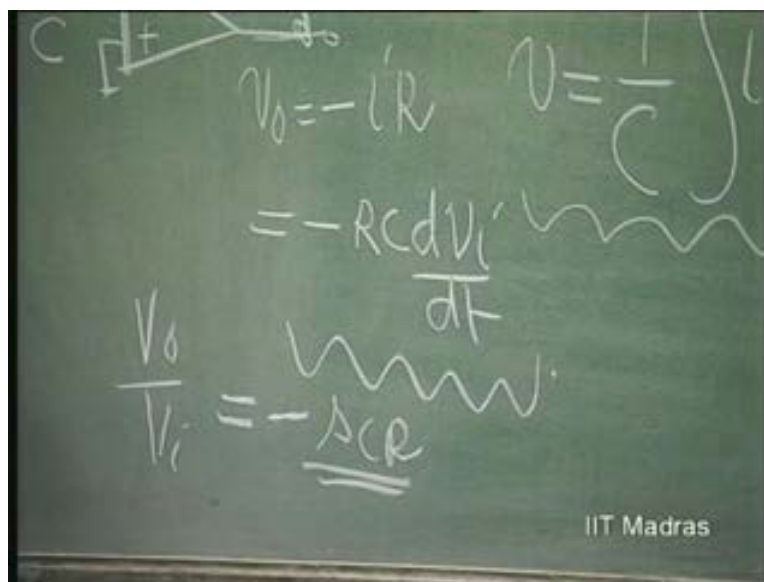 C
+
V₀ = -iR
v = 1/C ∫ i
= -RC dVi/dt
V₀/Vi = -sCR
IIT Madras